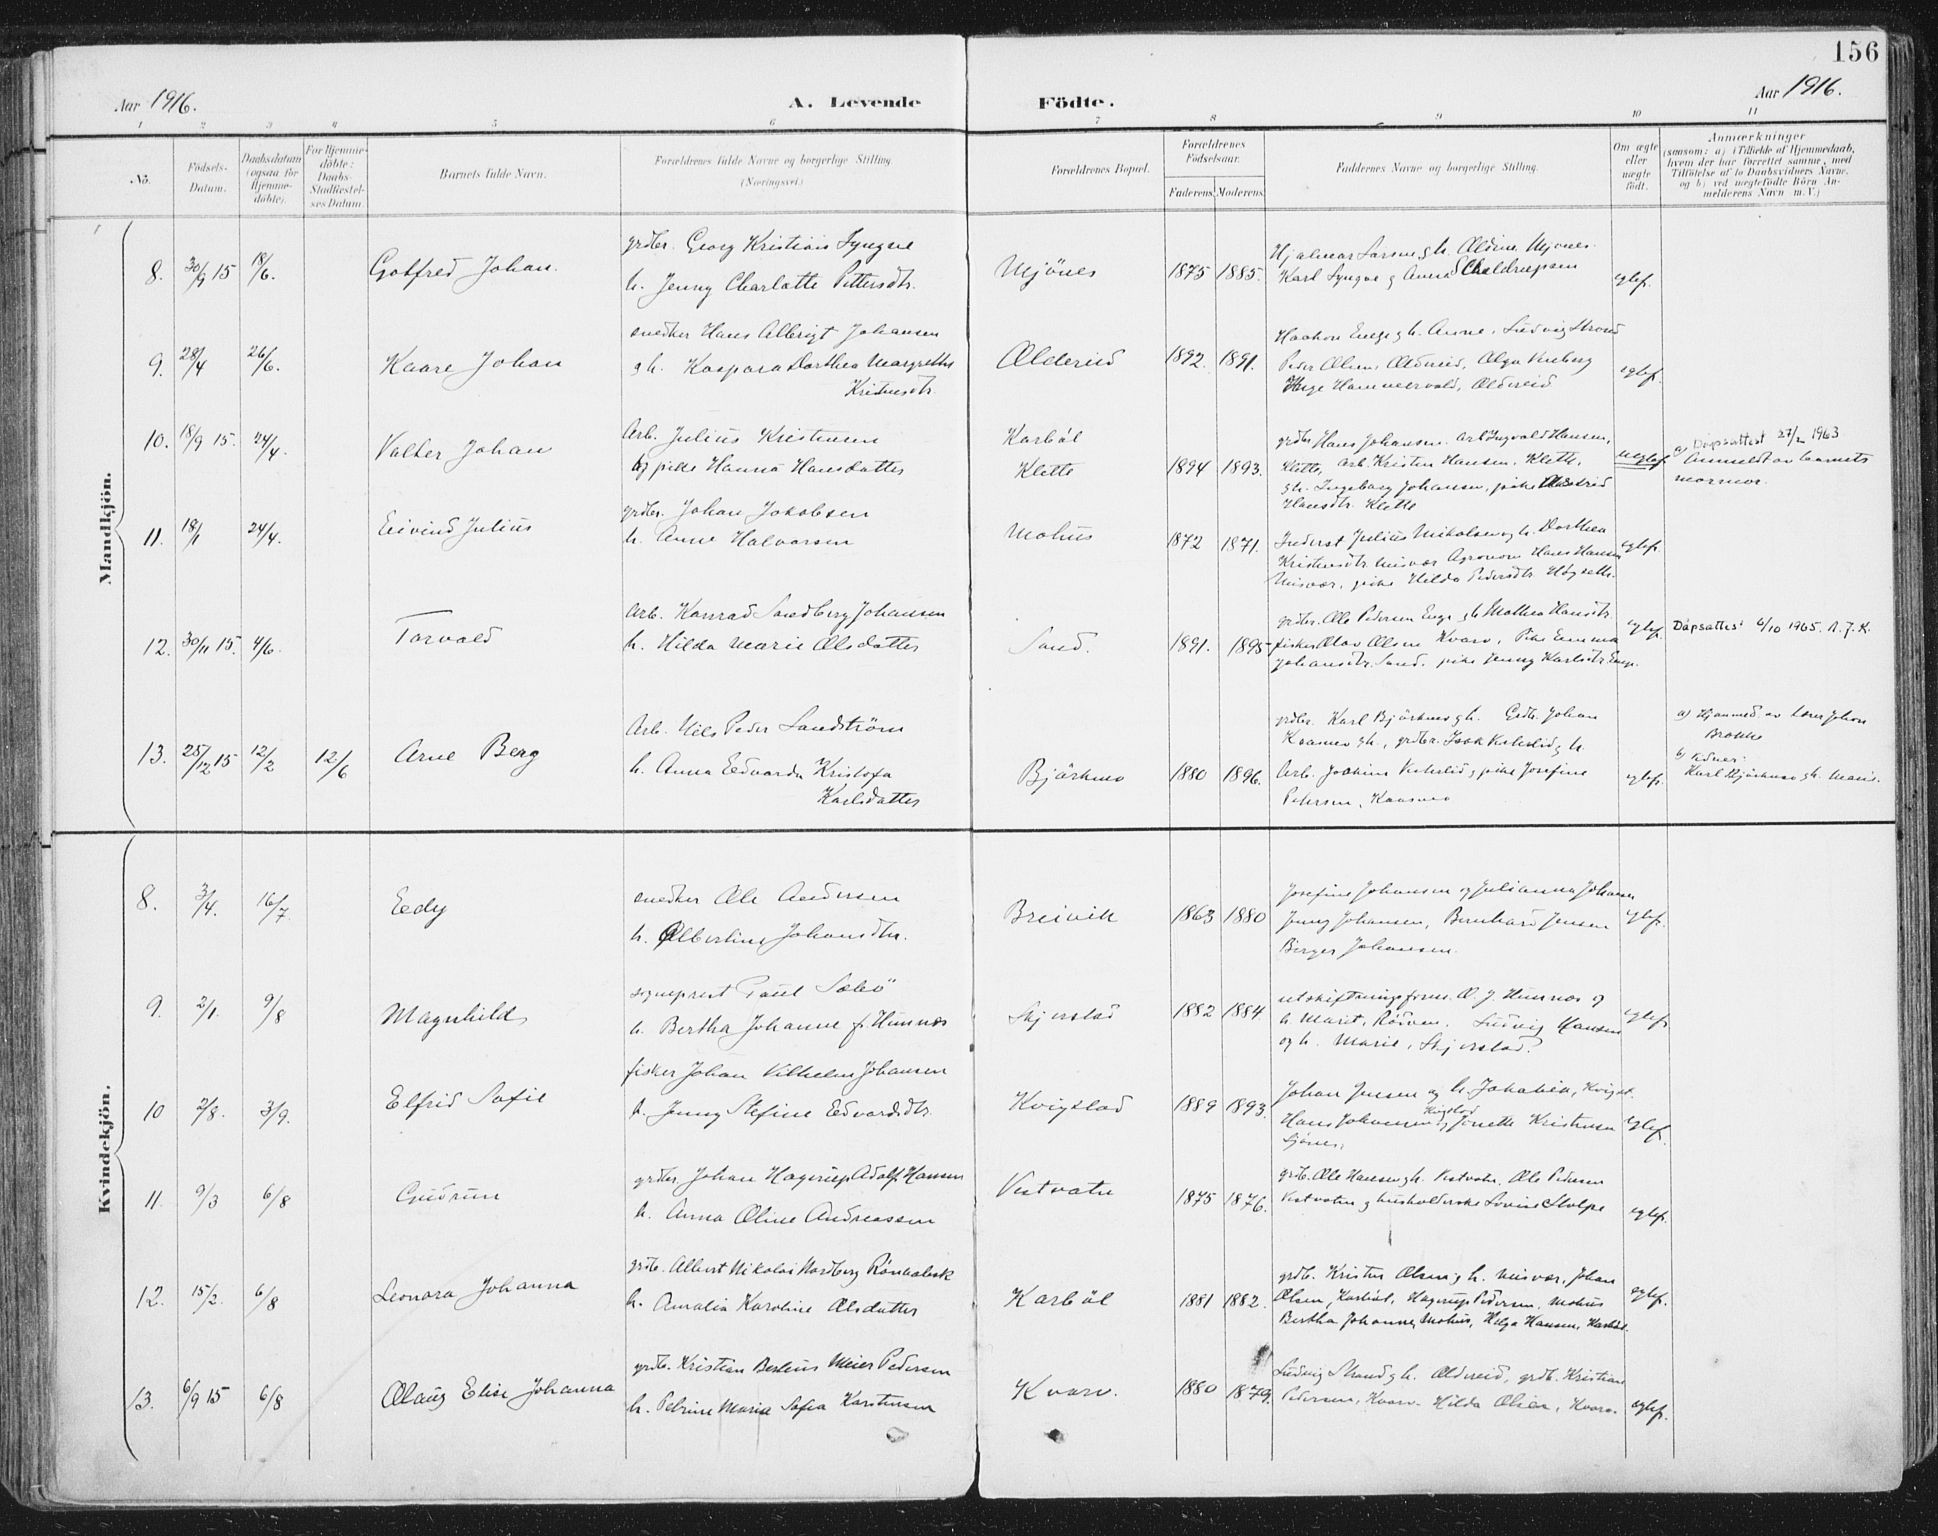 156
Aar 1916.
A. Levende
Födte.
Aar 1916.
1 2 3 4 5 6 7 8 9 10 11
No.
Födsels-
Datum.
Daabsdatum
(ogsaa for
Hjemme-
döbte).
For Hjemme-
döbte:
Daabs-
Stadfæstel-
ses Datum.
Barnets fulde Navn.
Forældrenes fulde Navne og borgerlige Stilling.
(Næringsvei.)
Forældrenes Bopæl.
Forældrenes
Födselsaar.
Faderens. Moderens.
Faddernes Navne og borgerlige Stilling.
Om ægte
eller
uægte
födt.
Anmærkninger
(saasom: a) i Tilfælde af Hjemmedaab,
hvem der har forrettet samme, med
Tilföielse af to Daabsvidners Navne,
og b) ved uægtefödte Börn An-
melderens Navn m. V.)
Mandkjön.
8. 30/9 15 18/6. Gotfred Johan.
grdbr. Georg Kristian Lyngve
h. Jenny Charlotte Pettersdtr.
Mjönes 1875 1885.
Hjalmar Larsen g h. Oldine, Mjones.
Karl Lyngve g Anna
egtef.
9. 28/4 26/6. Kaare Johan
snedker Hans Albrigt Johansen
g h. Kaspara Dorthea Margrethe
Kristensdtr.
Oldereid 1892. 1891.
Haakon Enge g h. Anne, Ludvig Strand
Peder Olsen, Oldereid, Olga
Hammervold, Oldereid
egtef.
10. 18/9 15. 24/4. Valter Johan
Arb. Julius Kristensen
og pike Hanna Hansdatter
Karböl
Klette 1894 1893.
grdbr Hans Johansen. Arb Ingvald Hansen,
Klette, arb. Kristen Hansen, Klette,
g h. Ingeborg Johansen, pike Astrid
Hansdtr. Klette
uegtef.
Dåpsattest 27/2 1963
a) Anmeldt av barnets
mormor.
11. 18/1 24/4. Eivind Julius
grdbr. Johan Jakobsen
h. Anne Halvorsen
Mohus 1872 1871.
Inderst Julius Nikolsen g h. Dorthea
Kristensdtr. Misvær Agronom Hans Hansen
Misvær, pike Hilda Pedersdtr. Høgseth.
egtef.
12. 30/11 15. 4/6. Torvald
Arb. Konrad Sandberg Johansen
h. Hilda Marie Olsdatter
Sand. 1891. 1895
grdbr. Ole Pedersen Enge g h Mathea Hansdtr.
fisker Olav Olsen Kvarv, Pike Emma
Johansdtr. Sand. pike Jenny Karlsdtr. Enge.
egtef.
Dåpsattest 6/10 1965. A. J. K.
13. 25/12 15 12/2 12/6 Arne Berg
Arb. Nils Peder Sandström
h. Anna Edvarda Kristofa
Karlsdatter
Björkmo 1880 1896.
grdbr. Karl Björkmo g h. Grdb. Johan
Kosmo g h., grdbr. Isak Vesterlid g h.
Arb. Joakim Vesterlid g pike Josefine
Petersen, Kosmo
egtef.
a) Hjemmed. av lærer Johan
Brokke
b) vidner:
Karl Björkmo g h. Marie.
Kvindekjön.
8. 3/4. 16/7. Eedy
snedker Ole Andersen
h. Olbertine Johansdtr.
Breivik 1863 1880
Josefine Johansen og Julianna Johansen
Jenny Johansen, Bernhard Jensen
Birger Johansen.
egtef.
9. 2/1. 9/8 Magnhild
sogneprest Paul Sæbö
h. Bertha Johanne f. Hunnes
Skjerstad 1882 1884
utskiftningsform. O. J. Hunnes og
h. Marit, Rödven. Ludvig Hansen
og h. Marie, Skjerstad.
egtef
10 2/8. 3/9. Elfrid Sofie
fisker Johan Vilhelm Johansen
h. Jenny Stefine Edvardsdtr.
Kvigstad 1889 1893.
Johan Jensen og h. Johanna, Kvigst.
Hans Johansen Kvigstad g Jonette Kristensen
egtef.
11. 9/3 6/8 Gudrun
grdbr Johan Hagerup Adolf Hansen
h. Anna Oline Andreassen
Vestvatn 1875 1876.
grdb. Ole Hansen g h. Vestvatn, Ole Pedersen
Vestvatn g husholderske Lovise Stolpe
egtef.
12. 15/2. 6/8 Leonora Johanna
grdb. Albert Nikolai Nordberg Rönbakk
h. Amalia Karoline Olsdatter
Karböl 1881 1882.
grdb. Kristen Olsen g h. Misvær, Johan
Olsen, Karböl, Hagerup Pedersen, Mohus
Bertha Johanne Mohus, Helga Hansen, Karböl.
egtef.
13. 6/9 15 6/8 Olaug Elise Johanna
grdb. Kristian Berlius Meier Pedersen
h. Petrine Marie Sofia Karstensen
Kvarv. 1880 1879.
Ludvig Strand g h. Oldereid, grdb. Kristian
Pedersen, Kvarv. Hilda Olsen, Kvarv.
egtef.